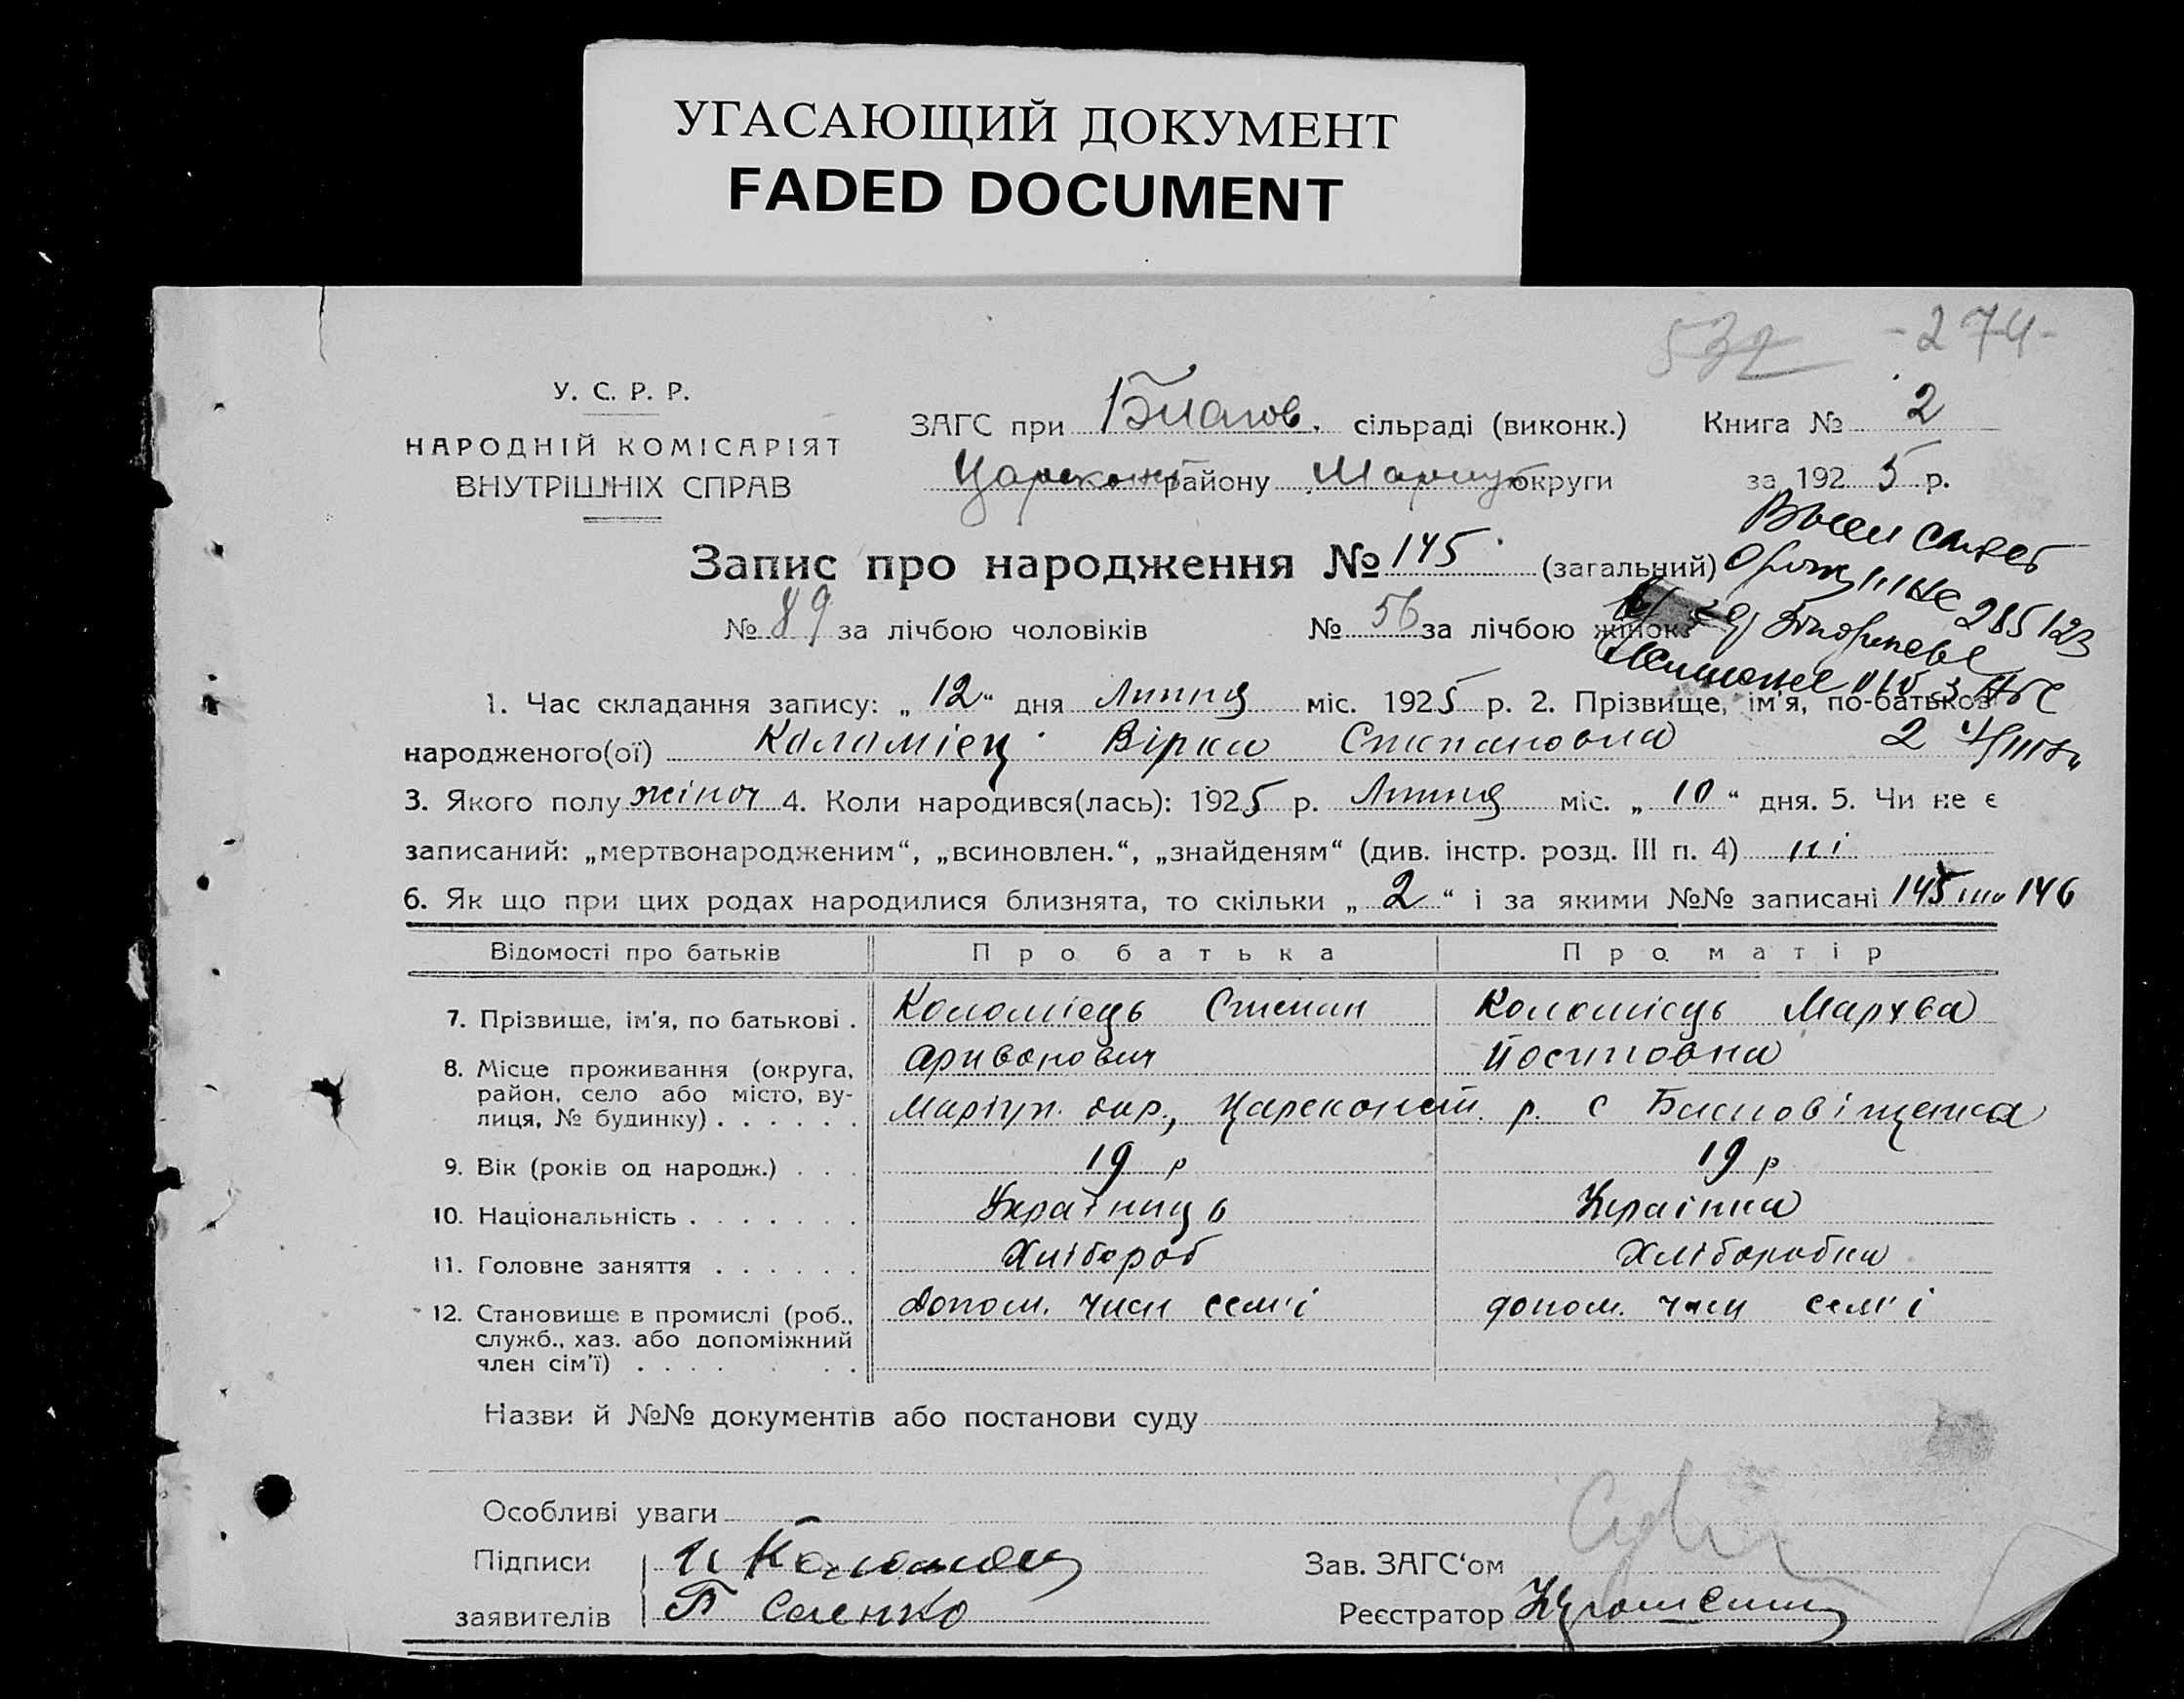 УГАСАЮЩИЙ ДОКУМЕНТ
FADED DOCUMENT
532 -274-
У. С. Р. Р.
НАРОДНІЙ КОМІСАРІЯТ
ВНУТРІШНІХ СПРАВ
ЗАГС при Благов. сільраді (виконк.) Книга № 2
Царекост району Маріуп округи за 1925 р.
Запис про народження № 145 (загальний)
№ 89 за лічбою чоловіків № 56 за лічбою жінок
285123
1. Час складання запису: „12“ дня Липця міс. 1925 р. 2. Прізвище, ім'я, по-батькові
народженого(ої) Коломієц Вірка Степановна
3. Якого полу жіноч 4. Коли народився(лась): 1925 р. Липця міс. „10“ дня. 5. Чи не є
записаний: „мертвонародженим“, „всиновлен.“, „знайденям“ (див. інстр. розд. III п. 4) ні
6. Як що при цих родах народилися близнята, то скільки „2“ і за якими №№ записані 145 та 146
Відомості про батьків Про батька Про матір
7. Прізвище, ім'я, по батькові . Коломієць Степан Коломієць Мархва
8. Місце проживання (округа, район, село або місто, вулиця, № будинку) . . . . . .
Маріуп. окр., Царекост. р. с Благовіщенка
9. Вік (років од народж.) . . . 19 р 19 р
10. Національність . . . . . . . Українець Українка
11. Головне заняття . . . . . . Хлібороб Хліборобка
12. Становище в промислі (роб., служб., хаз. або допоміжний член сім'ї) . . . . . . допом. член сем'ї допом. член сем'ї
Назви й №№ документів або постанови суду
Особливі уваги
Підписи Коломоец Зав. ЗАГС'ом
заявителів Саенко Реєстратор